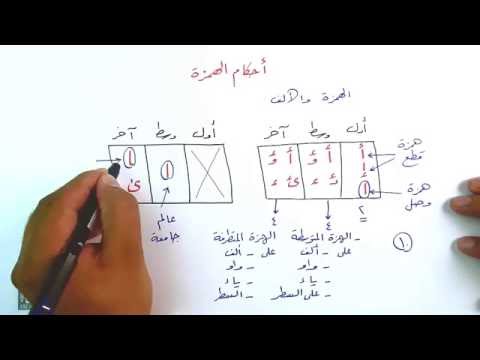 أحكام الهمزة
الهمزة والألف
أول وسط آخر
أ أ ؤ أ ؤ
إ ئ ء ئ ء
ا
همزة قطع
همزة وصل
٢ ٤ ٤
أول وسط آخر
ا ا
ى
عالم
جامعة
١
- الهمزة المتوسطة
على - ألف
- واو
- ياء
- على السطر
الهمزة المتطرفة
على - ألف
- واو
- ياء
- السطر